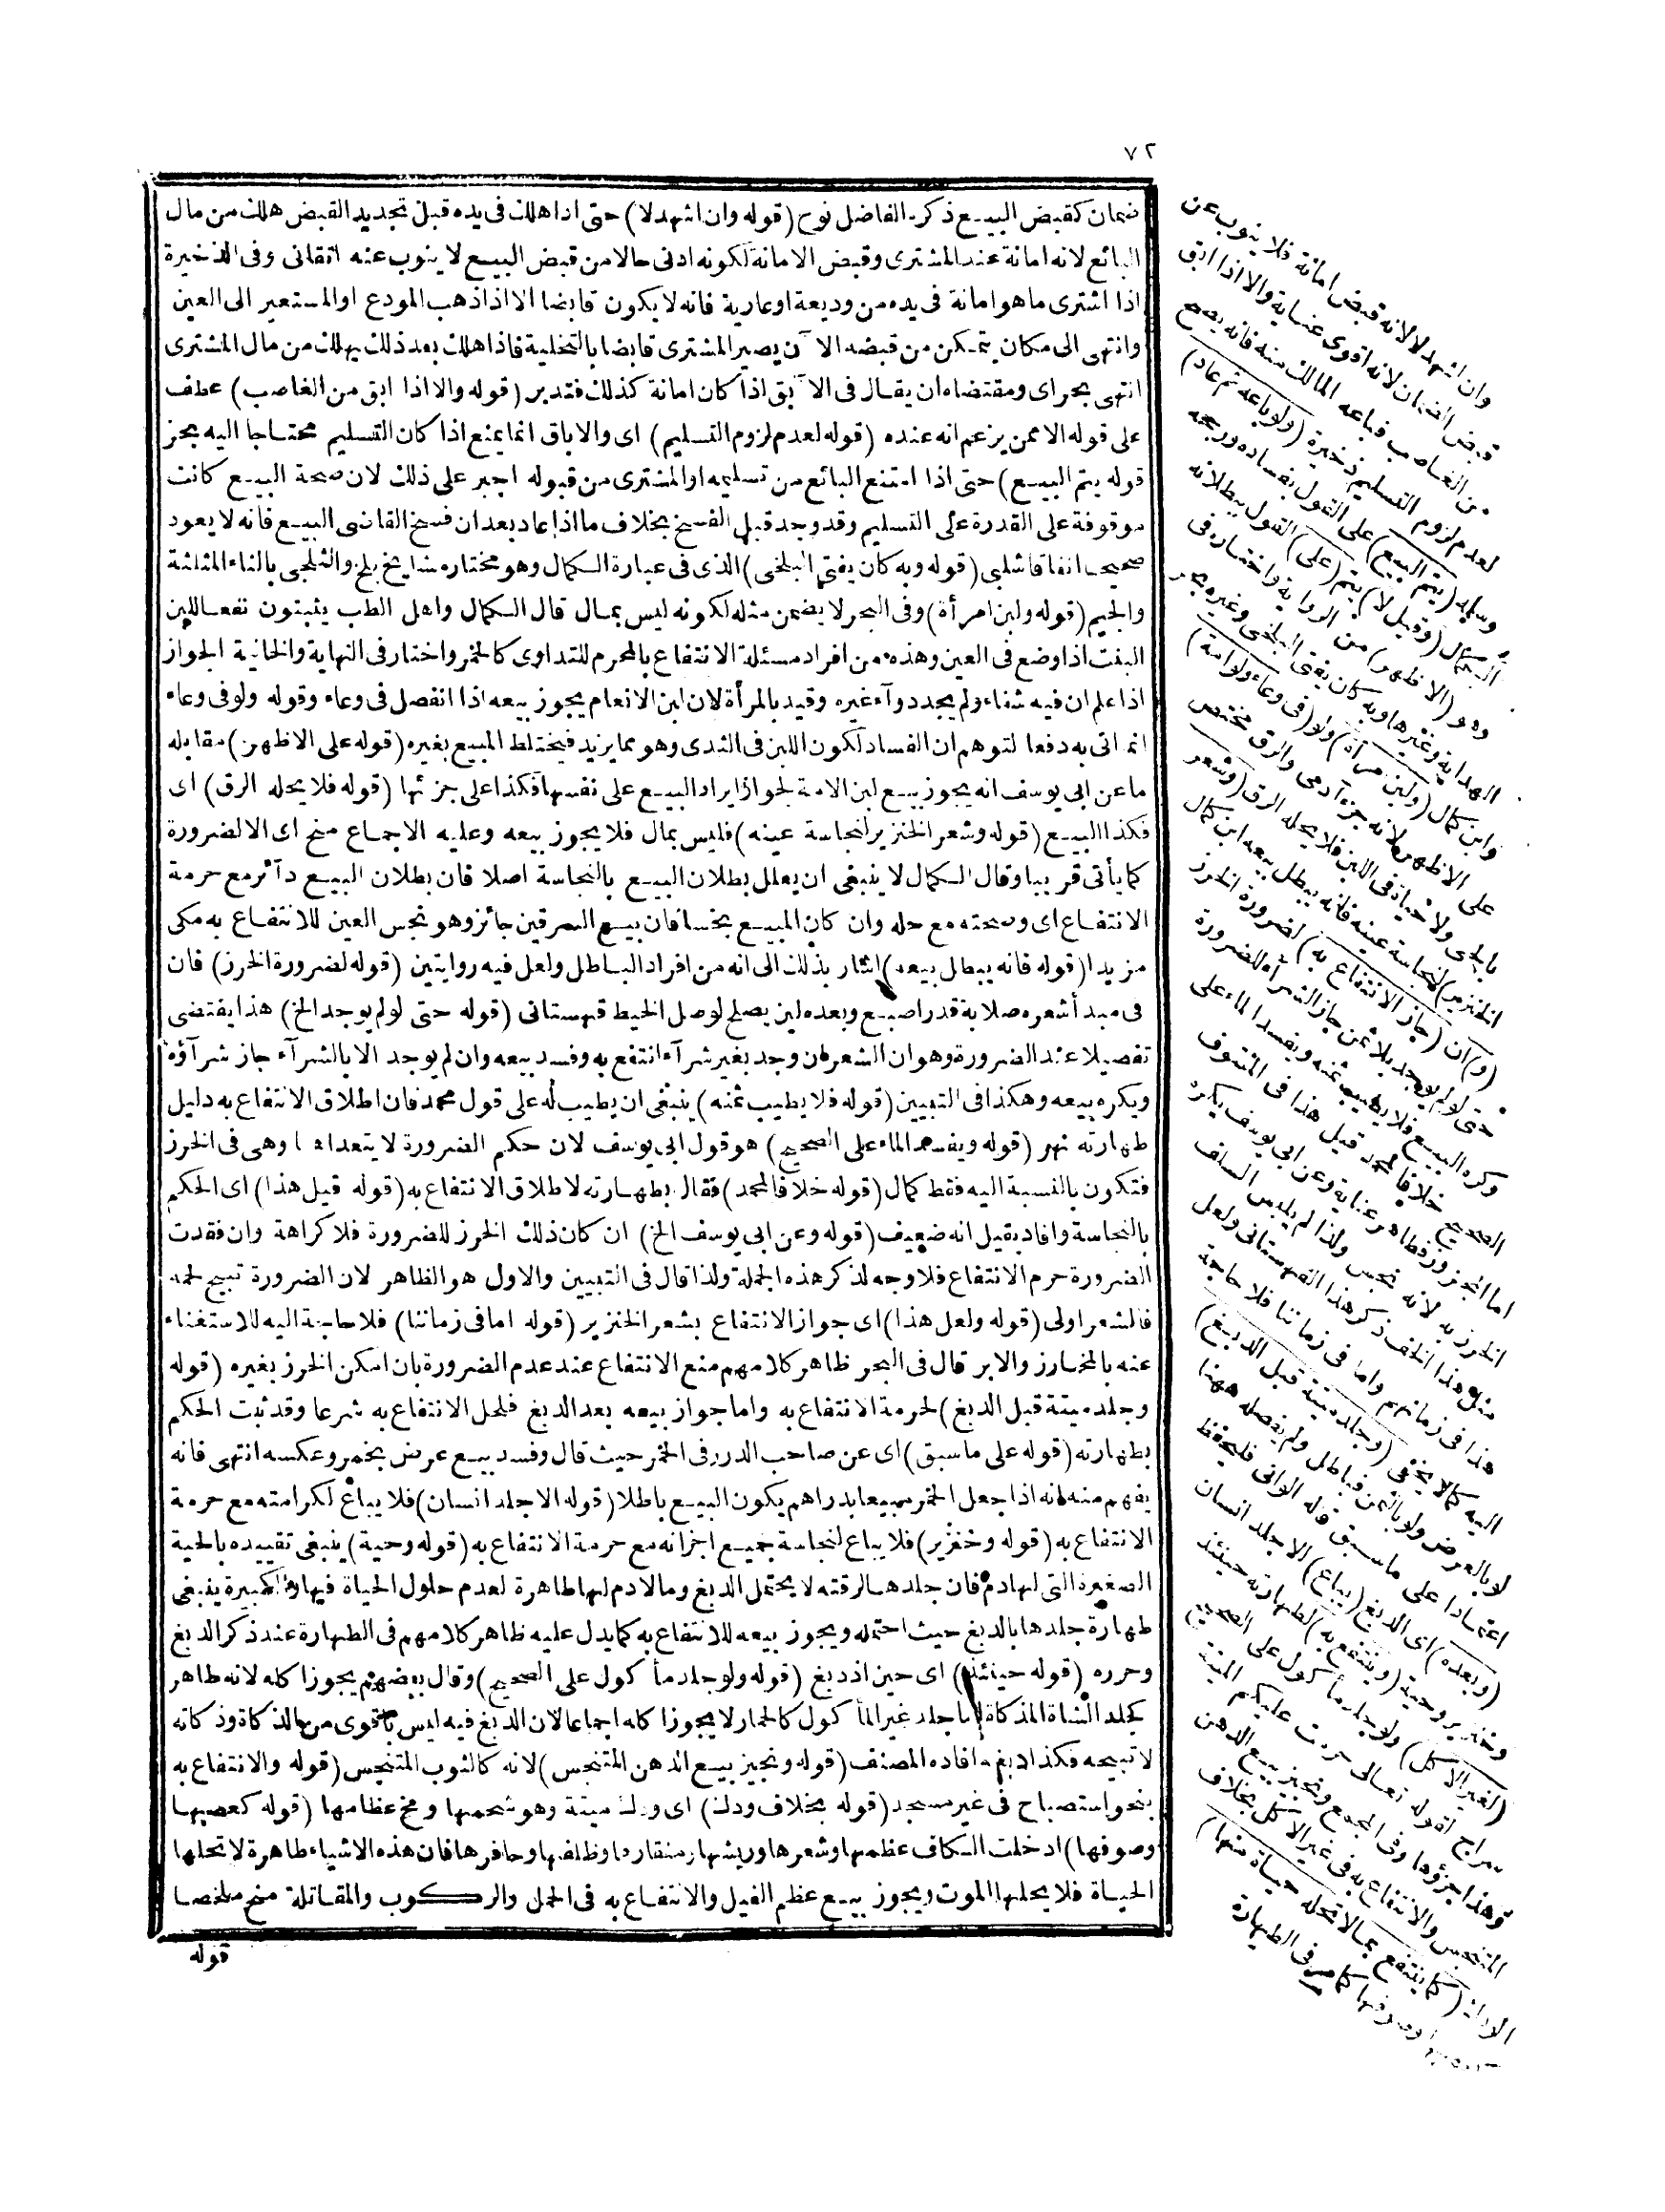 ٧٢
ضمان كقبض البيع ذكره الفاضل نوح (قوله وان اشهد لا) حتى اذا هلك فى يده قبل تجديد القبض هلك من مال
البائع لانه امانة عند المشترى وقبض الامانة لكونه ادنى حالا من قبض البيع لا ينوب عنه اتقانى وفى الذخيرة
اذا اشترى ما هو امانة فى يده من وديعة او عارية فانه لا يكون قابضا الا اذا ذهب المودع او المستعير الى العين
وانتهى الى مكان يتمكن من قبضه الآن يصير المشترى قابضا بالتخلية فاذا هلك بعد ذلك يهلك من مال المشترى
انتهى بحر اى ومقتضاه ان يقال فى الآبق اذا كان امانة كذلك فتدبر (قوله والا اذا ابق من الغاصب) عطف
على قوله الا ممن يزعم انه عنده (قوله لعدم لزوم التسليم) اى والاباق انما يمنع اذا كان التسليم محتاجا اليه بحر
قوله يتم البيع) حتى اذا امتنع البائع من تسليمه او المشترى من قبوله اجبر على ذلك لان صحة البيع كانت
موقوفة على القدرة على التسليم وقد وجد قبل الفسخ بخلاف ما اذا عاد بعد ان فسخ القاضى البيع فانه لا يعود
صحيحا اتفاقا شلبى (قوله وبه كان يفتى البلخى) الذى فى عبارة الكمال وهو مختار مشايخ بلخ والثلجى بالثاء المثلثة
والجيم (قوله ولبن امرأة) وفى البحر لا يضمن مثله لكونه ليس بمال قال الكمال واهل الطب يثبتون نفعا للبن
البنت اذا وضع فى العين وهذه من افراد مسئلة الانتفاع بالمحرم للتداوى كالخمر واختار فى النهاية والخانية الجواز
اذا علم ان فيه شفاء ولم يجد دوآء غيره وقيد بالمرأة لان لبن الانعام يجوز بيعه اذا انفصل فى وعاء وقوله ولو فى وعاء
انما اتى به دفعا لتوهم ان الفساد لكون اللبن فى الثدى وهو مما يزيد فيختلط المبيع بغيره (قوله على الاظهر) مقابله
ما عن ابى يوسف انه يجوز بيع لبن الامة لجواز ايراد البيع على نفسها فكذا على جزئها (قوله فلا يحله الرق) اى
فكذا البيع (قوله وشعر الخنزير لنجاسة عينه) فليس بمال فلا يجوز بيعه وعليه الاجماع منح اى الا لضرورة
كما يأتى قريبا وقال الكمال لا ينبغى ان يعلل بطلان البيع بالنجاسة اصلا فان بطلان البيع دآئر مع حرمة
الانتفاع اى وصحته مع حله وان كان المبيع نجسا فان بيع السرقين جائز وهو نجس العين للانتفاع به مكى
مزيدا (قوله فانه يبطل بيعه) اشار بذلك الى انه من افراد الباطل ولعل فيه روايتين (قوله لضرورة الخرز) فان
فى مبدأ شعره صلابة قدر اصبع وبعده لين يصلح لوصل الخيط قهستانى (قوله حتى لو لم يوجد الخ) هذا يقتضى
تفصيلا عند الضرورة وهو ان الشعر ان وجد بغير شرآء انتفع به وفسد بيعه وان لم يوجد الا بالشرآء جاز شرآؤه
ويكره بيعه وهكذا فى التبيين (قوله فلا يطيب ثمنه) ينبغى ان يطيب له على قول محمد فان اطلاق الانتفاع به دليل
طهارته نهر (قوله ويفسد الماء على الصحيح) هو قول ابى يوسف لان حكم الضرورة لا يتعداها وهى فى الخرز
فتكون بالنسبة اليه فقط كمال (قوله خلافا لمحمد) فقال بطهارته لاطلاق الانتفاع به (قوله قيل هذا) اى الحكم
بالنجاسة وافاد بقيل انه ضعيف (قوله وعن ابى يوسف الخ) ان كان ذلك الخرز للضرورة فلا كراهة وان فقدت
الضرورة حرم الانتفاع فلا وجه لذكر هذه الجملة ولذا قال فى التبيين والاول هو الظاهر لان الضرورة تبيح لحمه
فالشعر اولى (قوله ولعل هذا) اى جواز الانتفاع بشعر الخنزير (قوله اما فى زماننا) فلا حاجة اليه للاستغناء
عنه بالمخارز والابر قال فى البحر ظاهر كلامهم منع الانتفاع عند عدم الضرورة بان امكن الخرز بغيره (قوله
وجلد ميتة قبل الدبغ) لحرمة الانتفاع به واما جواز بيعه بعد الدبغ فلحل الانتفاع به شرعا وقد ثبت الحكم
بطهارته (قوله على ما سبق) اى عن صاحب الدرر فى الخمر حيث قال وفسد بيع عرض بخمر وعكسه انتهى فانه
يفهم منه انه اذا جعل الخمر مبيعا بدراهم يكون البيع باطلا (قوله الا جلد انسان) فلا يباع لكرامته مع حرمة
الانتفاع به (قوله وخنزير) فلا يباع لنجاسة جميع اجزائه مع حرمة الانتفاع به (قوله وحية) ينبغى تقييده بالحية
الصغيرة التى لها دم فان جلدها لرقته لا يحتمل الدبغ وما لا دم لها طاهرة لعدم حلول الحياة فيها والكبيرة ينبغى
طهارة جلدها بالدبغ حيث احتمله ويجوز بيعه للانتفاع به كما يدل عليه ظاهر كلامهم فى الطهارة عند ذكر الدبغ
وحرره (قوله حينئذ) اى حين اذ دبغ (قوله ولو جلد مأكول على الصحيح) وقال بعضهم يجوز اكله لانه طاهر
كجلد الشاة المذكاة اما جلد غير المأكول كالحمار لا يجوز اكله اجماعا لان الدبغ فيه ليس باقوى من الذكاة وذكاته
لا تبيحه فكذا دبغه افاده المصنف (قوله ونجيز بيع الدهن المتنجس) لانه كالثوب المتنجس (قوله والانتفاع به
بنحو استصباح فى غير مسجد (قوله بخلاف ودك) اى ودك ميتة وهو شحمها ومخ عظامها (قوله كعصبها
وصوفها) ادخلت الكاف عظمها وشعرها وريشها ومنقارها وظلفها وحافرها فان هذه الاشياء طاهرة لا تحلها
الحياة فلا يحلها الموت ويجوز بيع عظم الفيل والانتفاع به فى الحمل والركوب والمقاتلة منح ملخصا
قوله
وان اشهد لا لانه قبض امانة فلا ينوب عن
قبض الضمان لانه اقوى عناية والا اذا ابق
من الغاصب فباعه المالك منه فانه يصح
لعدم لزوم التسليم ذخيرة (ولو باعه ثم عاد)
وسلمه (يتم البيع) على القول بفساده ورجحه
الكمال (وقيل لا) يتم (على) القول ببطلانه
وهو (الاظهر) من الرواية واختاره فى
الهداية وغيرها وبه كان يفتى البلخى وغيره بحر
وابن كمال (ولبن امرأة) ولو (فى وعاء ولو امة)
على الاظهر لانه جزء آدمى والرق مختص
بالحى ولا حياة فى اللبن فلا يحله الرق (وشعر
الخنزير) لنجاسة عينه فانه يبطل بيعه ابن كمال
(و) ان (جاز الانتفاع به) لضرورة الخرز
حتى لو لم يوجد بلا ثمن جاز الشرآء للضرورة
وكره البيع فلا يطيب ثمنه ويفسد الماء على
الصحيح خلافا لمحمد قيل هذا فى المنتوف
اما المجزوز فطاهر عناية وعن ابى يوسف يكره
الخرز به لانه نجس ولذا لم يلبس السلف
مثل هذا الخف ذكر هذا القهستانى ولعل
هذا فى زمانهم واما فى زماننا فلا حاجة
اليه كما لا يخفى (وجلد ميتة قبل الدبغ)
لو بالعرض ولو بالثمن فباطل ولم يفصله ههنا
اعتمادا على ما سبق قاله الوانى فليحفظ
(وبعده) اى الدبغ (يباع) الا جلد انسان
وخنزير وحية (وينتفع به) لطهارته حينئذ
(لغير الاكل) ولو جلد مأكول على الصحيح
سراج لقوله تعالى حرمت عليكم الميتة
وهذا جزؤها وفى المجمع ونجيز بيع الدهن
المتنجس والانتفاع به فى غير الاكل بخلاف
الودك (كما ينتفع بما لا تحله حياة منها)
كعصبها وصوفها كما مر فى الطهارة